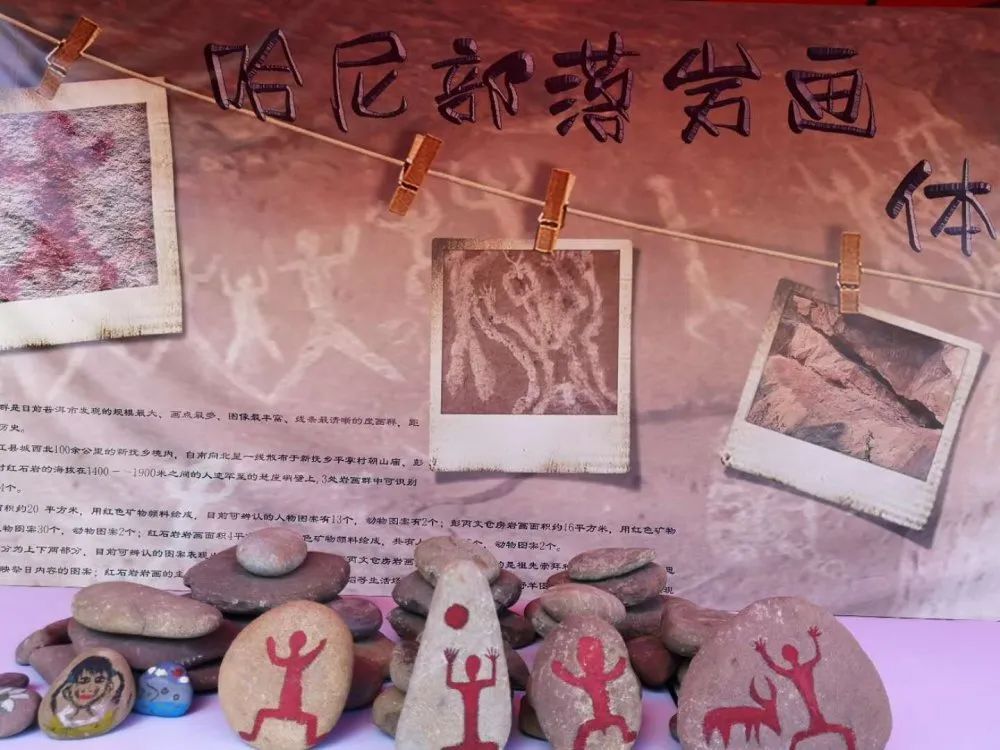 哈尼部落岩画
体
群是目前普洱市发现的规模最大、画点最多、图像最丰富、线条最清晰的崖画群,距
历史。
江县城西北100余公里的新抚乡境内,自南向北呈一线散布于新抚乡平掌村朝山庙,彭
村红石岩的海拔在1400--1900米之间的人迹罕至的悬崖峭壁上,3处岩画群中可识别
个。
面积约20 平方米,用红色矿物颜料绘成,目前可辨认的人物图案有13个,动物图案有2个;彭丙文仓房岩画面积约16平方米,用红色矿物
人物图案30个,动物图案2个;红石岩岩画面积4平 色矿物颜料绘成,共有人 个,动物图案2个。
分为上下两部分,目前可辨认的图案表现 丙文仓房岩画 的是祖先崇拜
映祭目内容的图案;红石岩岩画的主 等生活场 野羊图